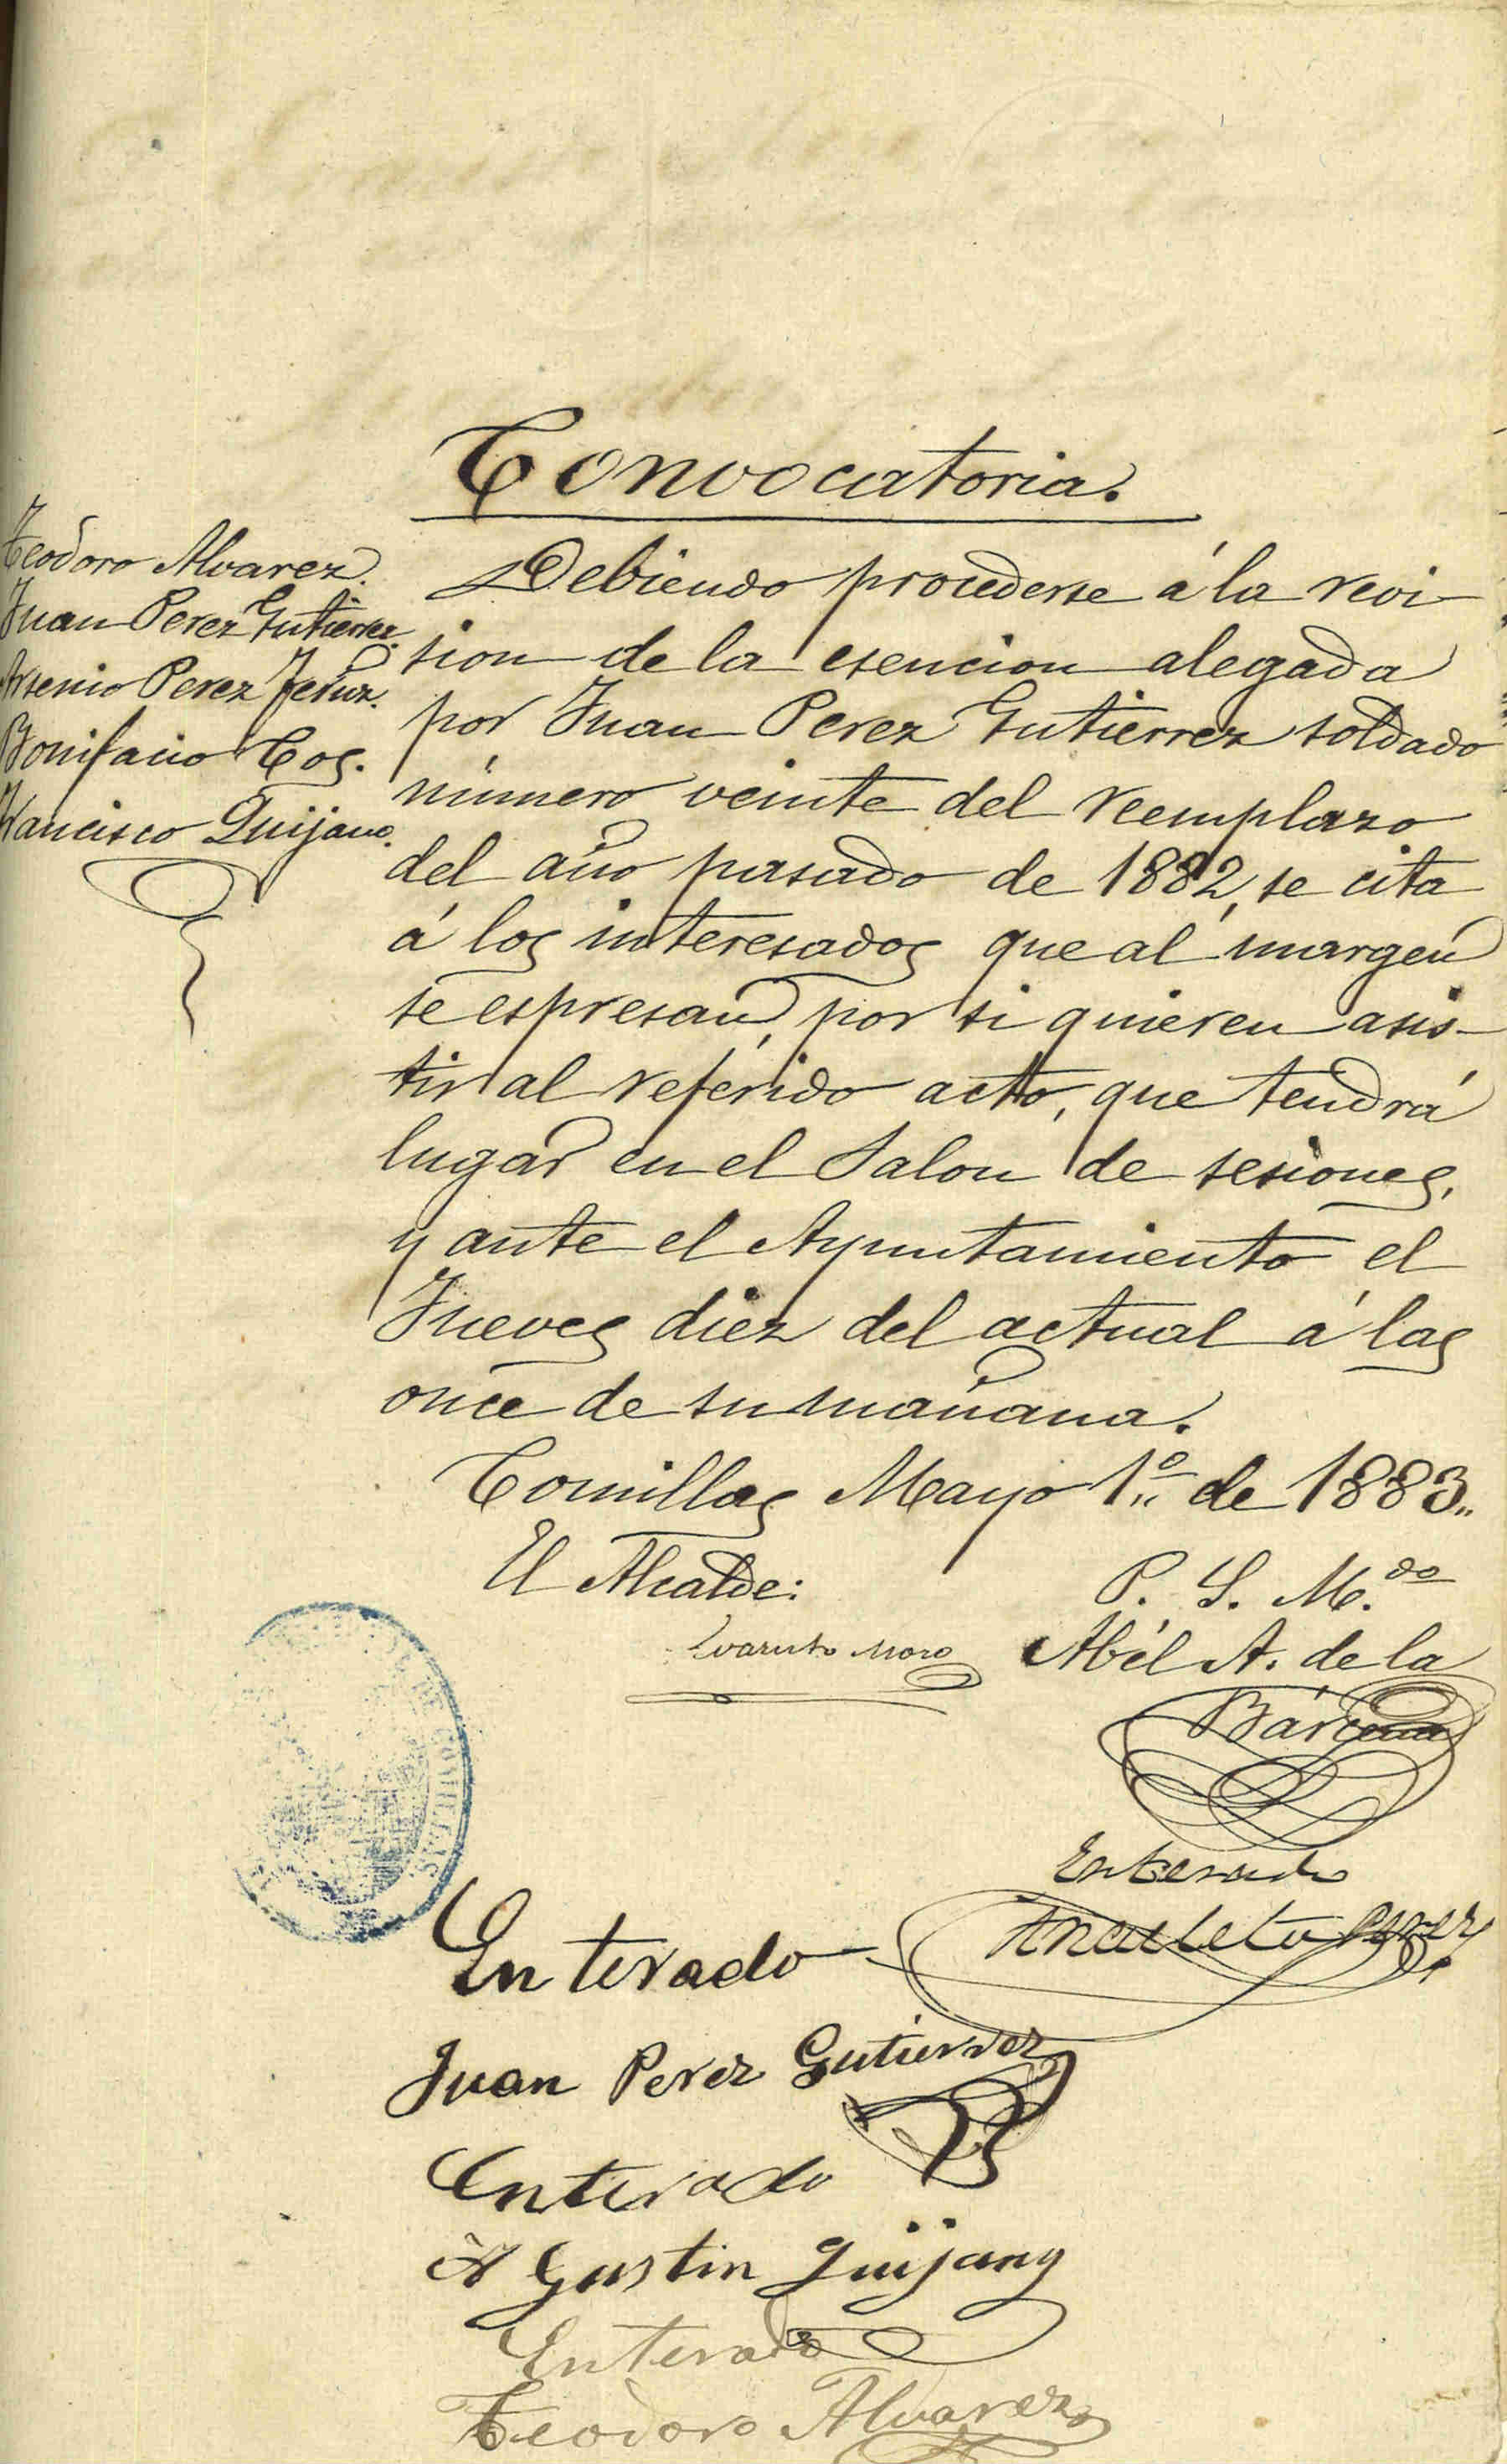 Convocatoria.
Teodoro Alvarez.
Juan Perez Gutierrez.
Arsenio Perez Fernz.
Bonifacio Cos.
Francisco Quijano.
Debiendo procederse á la revi-
sion de la esencion alegada
por Juan Perez Gutierrez soldado
número veinte del reemplazo
del año pasado de 1882, se cita
á los interesados que al margen
se espresan, por si quieren asis-
tir al referido acto, que tendrá
lugar en el Salon de sesiones,
y ante el Ayuntamiento el
Jueves diez del actual á las
once de su mañana.
Comillas Mayo 1º de 1883.
El Alcalde:
Evaristo Moro
P. S. M.do
Abél A. de la
Bárcena
Enterado
Anacleto Perez
Enterado
Juan Perez Gutierrez
Enterado
Agustin Quijano
Enterado
Teodoro Alvarez